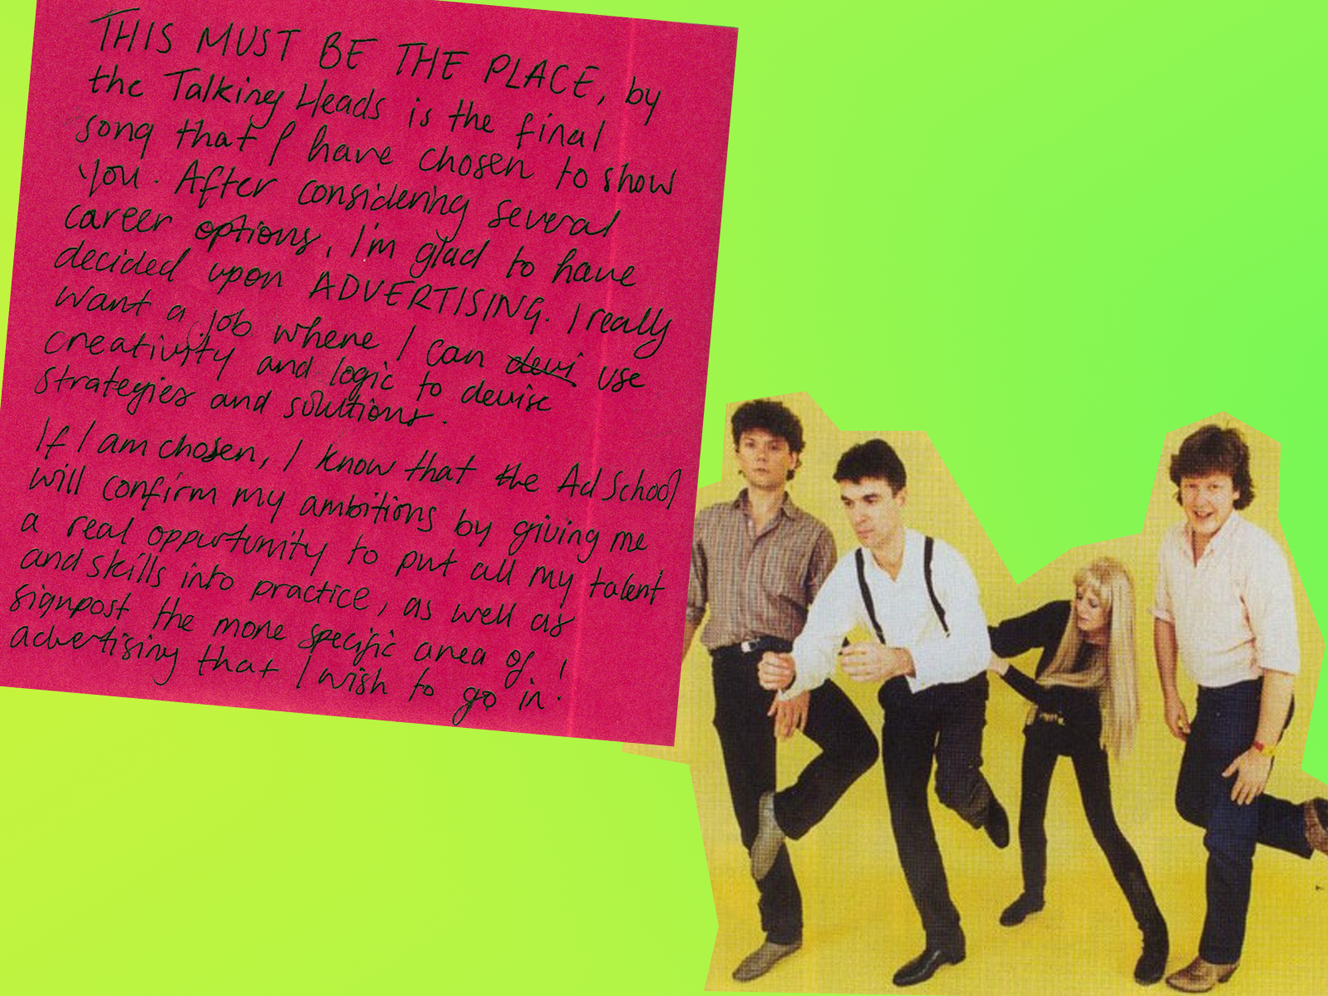 THIS MUST BE THE PLACE, by
the Talking Heads is the final
song that I have chosen to show
you. After considering several
career options, I'm glad to have
decided upon ADVERTISING. I really
want a job where I can devi use
creativity and logic to devise
strategies and solutions.
If I am chosen, I know that the Ad School
will confirm my ambitions by giving me
a real opportunity to put all my talent
and skills into practice, as well as
signpost the more specific area of
advertising that I wish to go in!